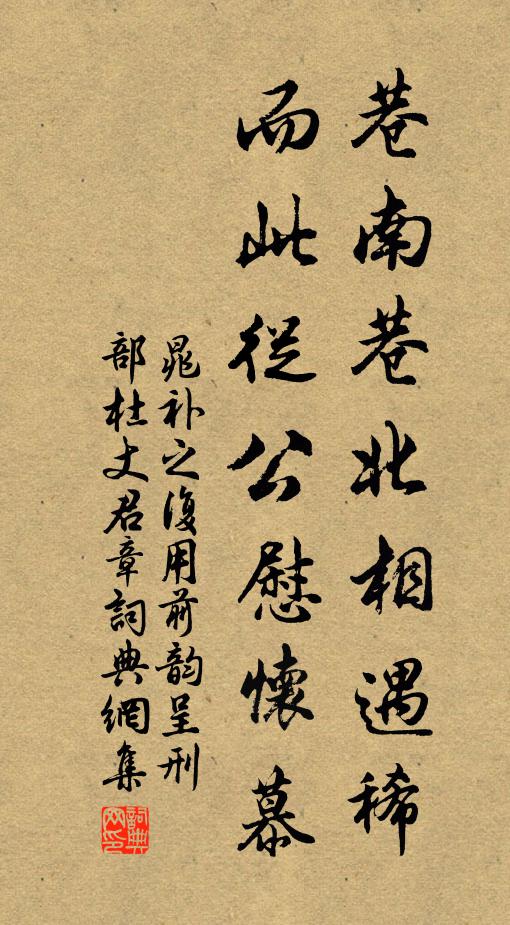 巷南巷北相遇稀
而此從公慰懷慕
晁补之復用前韵呈刑
部杜丈君章詞典網集
詞典网印